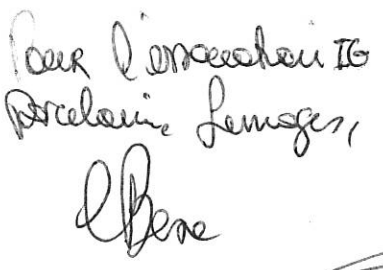 Pour l'association IG
Porcelaine Limoges,